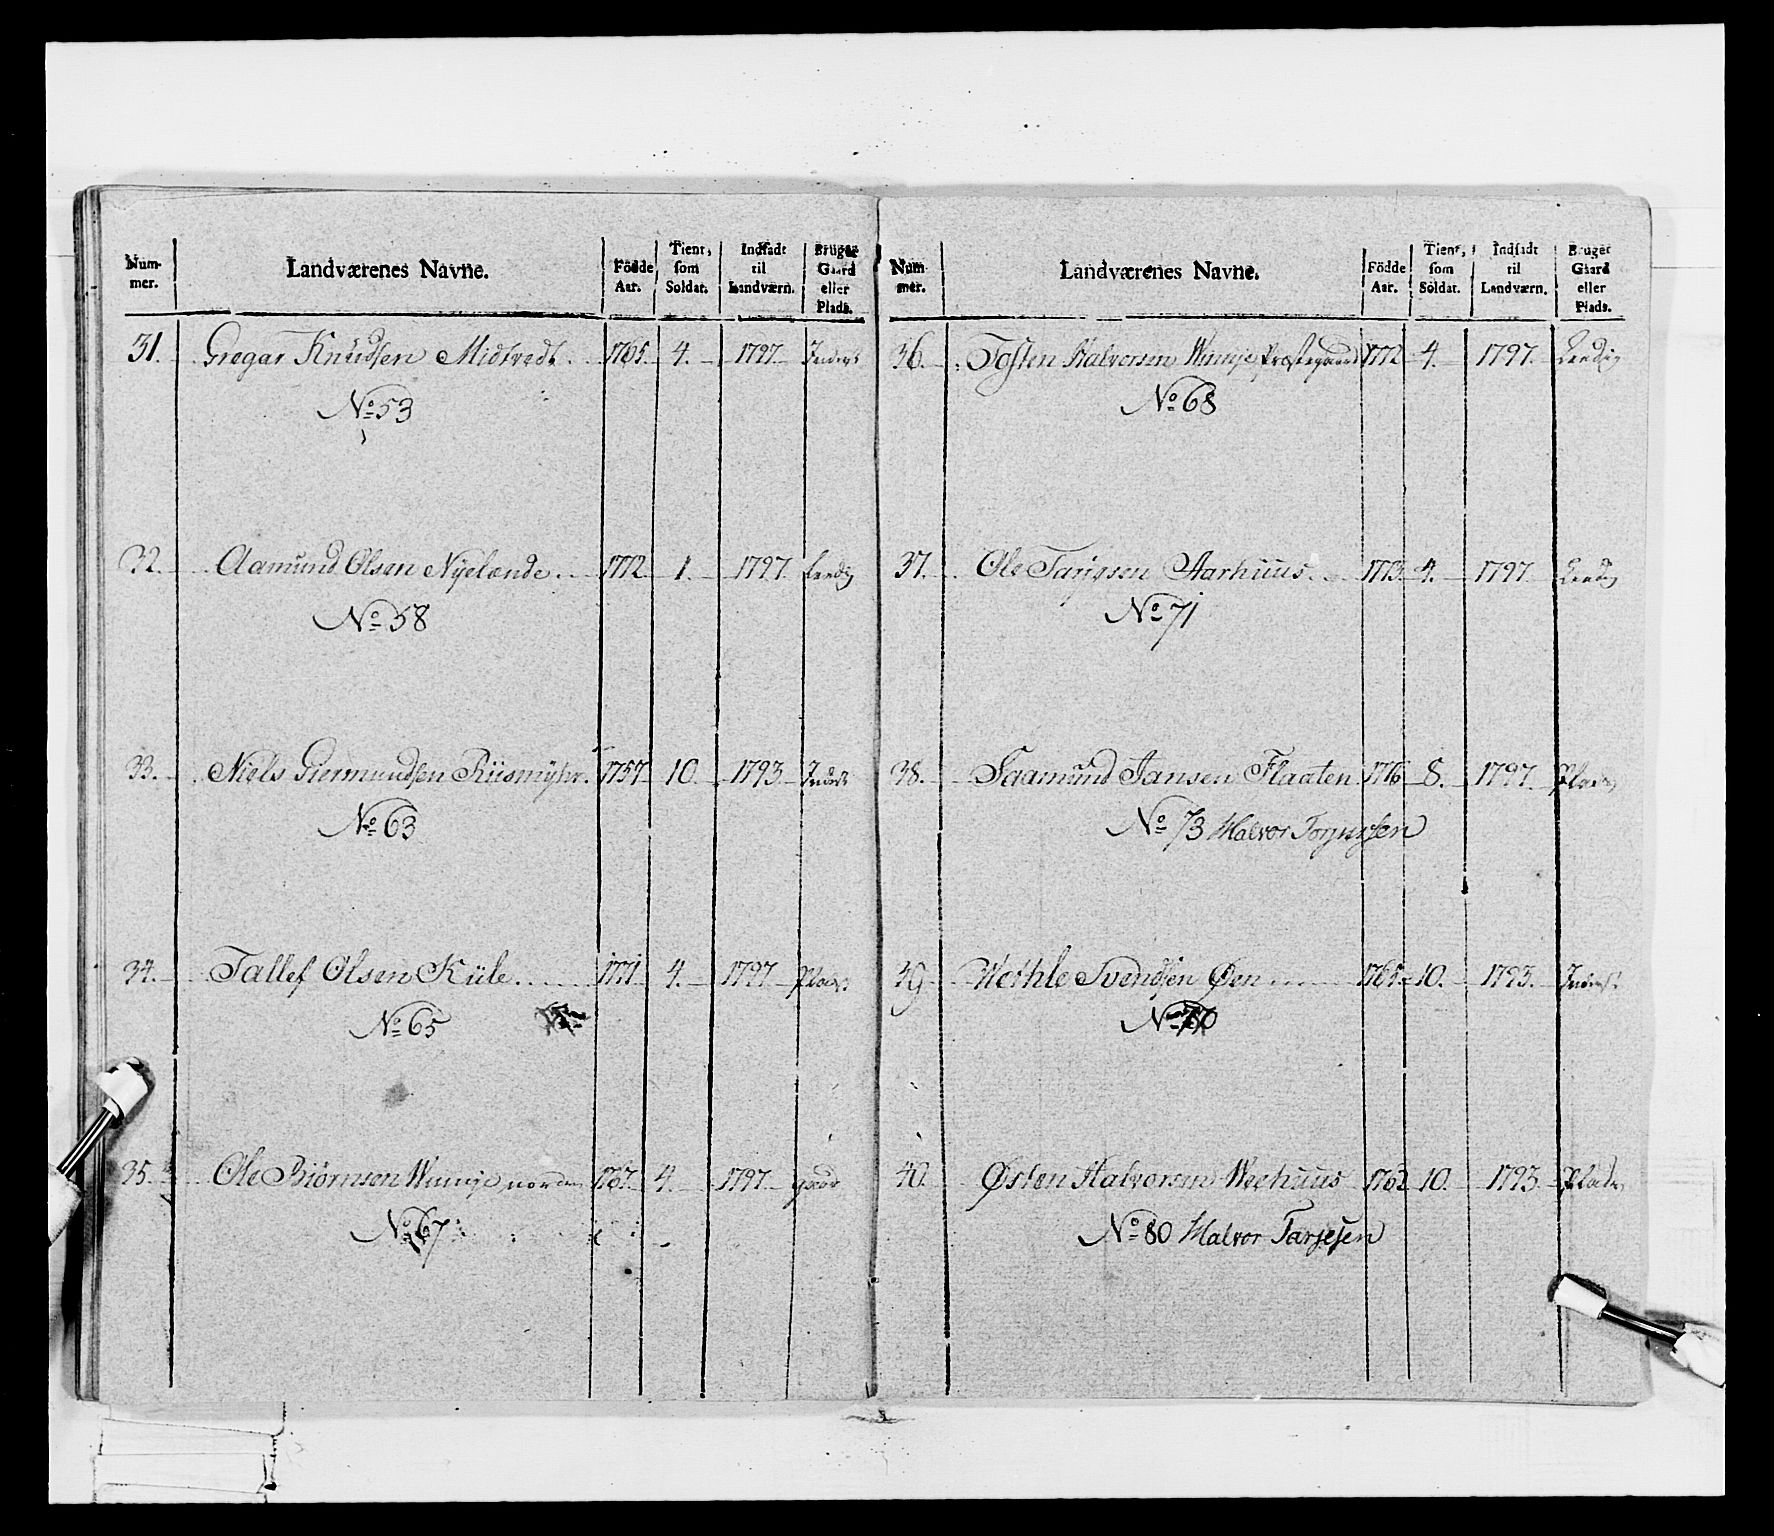 Num-mer. Landværenes Navne. Födde Aar. Tient, som Soldat. Indsadt til Landværn. Bruger Gaard eller Plads.
31. Gregar Knudsen Midtvedt. 1765. 4. 1797. Inderst
No 53
32. Aamund Olsen Nyelænde. 1772. 1. 1797 Leedig
No 58
33. Niels Giermundsen Riismyhr. 1757 10. 1793. Inderst
No 63
34. Tallef Olsen Kiile. 1771 4. 1797 Plads
No 65
35. Ole Biörnsen Winnje norden 1767. 4. 1797. Gaard
No 67
Num-mer. Landværenes Navne. Födde Aar. Tient, som Soldat. Indsadt til Landværn. Bruger Gaard eller Plads.
36. Tosten Halvorsen Winnje Præstegaard 1772 4. 1797. Leedig
No 68
37. Ole Tarjesen Aarhuus. 1773. 4. 1797 Leedig
No 71
38. Saamund Jansen Flaaten 1776 8. 1797. Plads
No 73 Halvor Torjussen
39. Wethle Svendsen Øen 1765. 10. 1793. Inderst
No 70
40. Østen Halvorsen Weehuus 1762 10. 1793. Plads
No 80 Halvor Tarjesen